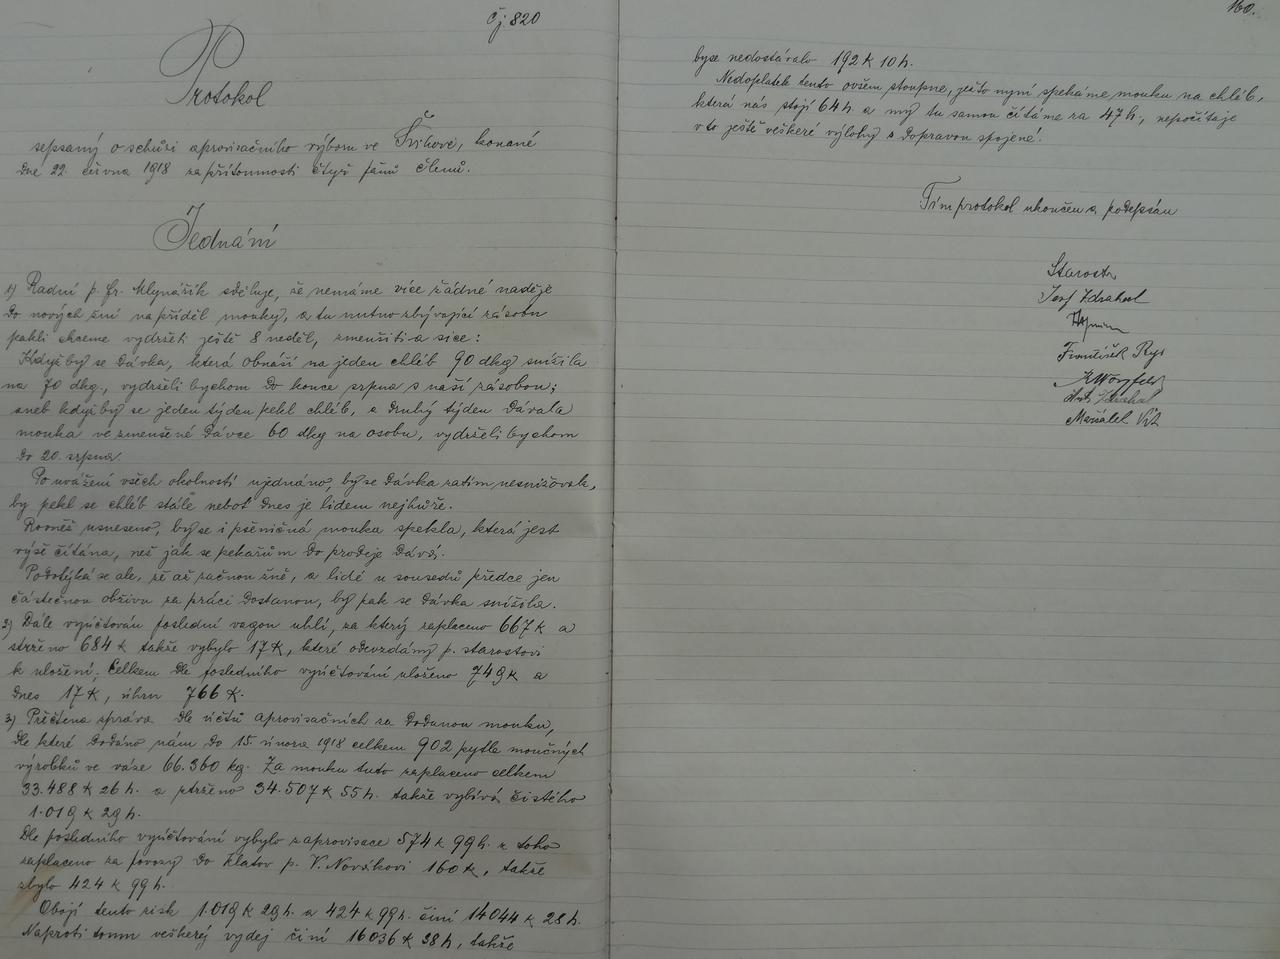 čj 820
Protokol
sepsaný o schůzi aprovisačního výboru ve Švihově, konané
dne 22. června 1918 za přítomnosti čtyř pánů členů.
Jednání
1) Radní p. Fr. Mlynářík sděluje, že nemáme více žádné naděje
do nových žní na příděl mouky, a tu nutno zbývající zásobu
pakli chceme vydržeti ještě 8 neděl, zmenšiti a sice:
Když by se dávka, která obnáší na jeden chléb 90 dkg snížila
na 70 dkg., vydrželi bychom do konce srpna s naší zásobou;
aneb když by se jeden týden pekl chléb, a druhý týden dávala
mouka ve zmenšené dávce 60 dkg na osobu, vydrželi bychom
do 20. srpna.
Po uvážení všech okolností ujednáno, by se dávka zatím nesnižovala,
by pekl se chléb stále neboť dnes je lidem nejhůře.
Rovněž usneseno, by se i pšeničná mouka spekla, která jest
výše čítána, než jak se pekařům do prodeje dává.
Podotýká se ale, že až začnou žně, a lidé u sousedů předce jen
částečnou obživu za práci dostanou, by pak se dávka snížila.
2) Dále vyúčtován poslední vagon uhlí, za který zaplaceno 667 K a
strženo 684 K takže vybylo 17 K, které odevzdány p. starostovi
k uložení; Celkem dle posledního vyúčtování uloženo 749 K a
dnes 17 K, úhrn 766 K.
3) Přečtena zpráva dle účtů aprovisačních za dodanou mouku,
dle které dodáno nám do 15. února 1918 celkem 902 pytle moučných
výrobků ve váze 66.360 kg. Za mouku tuto zaplaceno celkem
33.488 K 26 h. a strženo 34.507 K 55 h. takže vybívá čistého
1.019 K 29 h.
Dle posledního vyúčtování vybylo z aprovisace 574 K 99 h. z toho
zaplaceno za povozy do Klatov p. V. Novákovi 160 K, takže
zbylo 424 K 99 h.
Obojí tento zisk 1.019 K 29 h. a 424 K 99 h. činí 14044 K 28 h.
Naproti tomu veškerý vydej činí 16036 K 38 h, takže
160.
by se nedostávalo 192 K 10 h.
Nedoplatek tento ovšem stoupne, ježto nyní spekáme mouku na chléb,
která nás stojí 64 h a my tu samou čítáme za 47 h, nepočítaje
v to ještě veškeré výlohy s dopravou spojené!
Tím protokol ukončen a podepsán
Starosta
Josef Zdrahal
František Rys
Zdrahal
Maršálek Vít